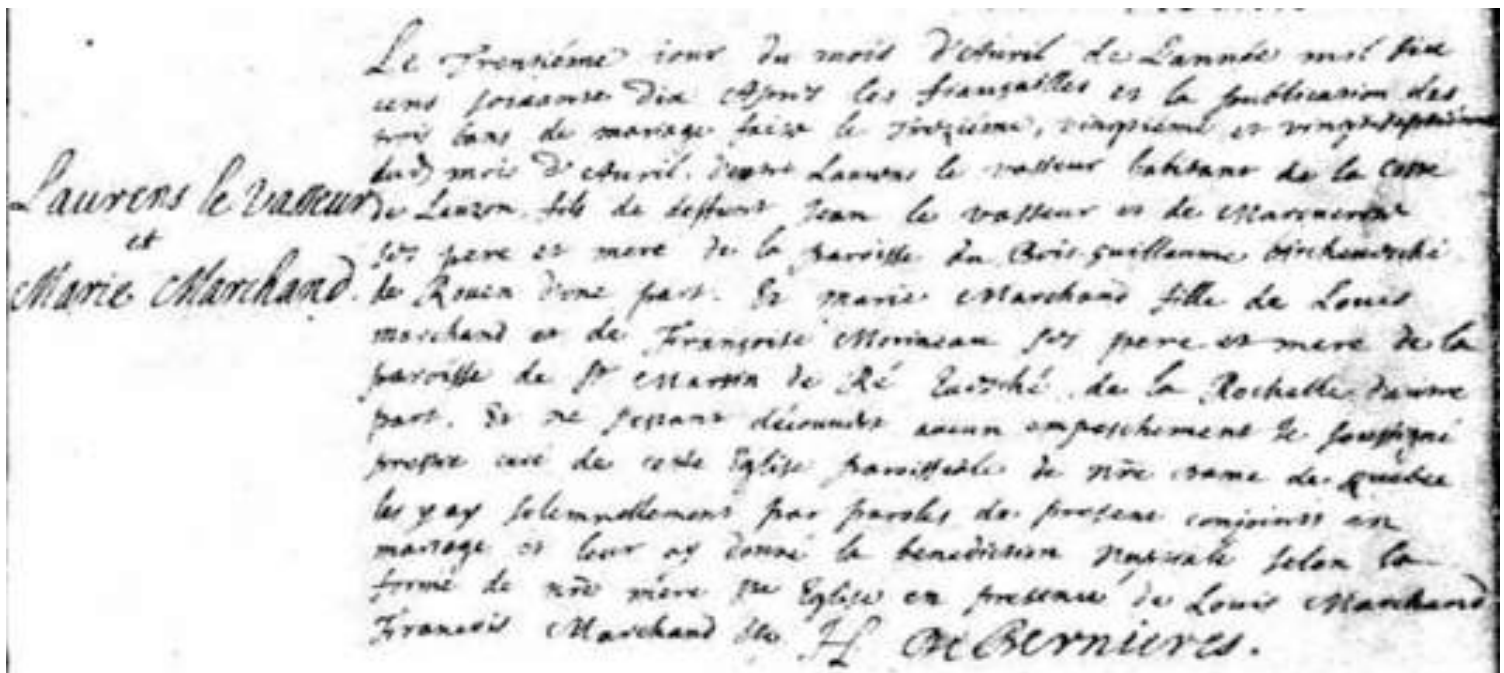 Laurens le Vasseur
et
Marie Marchand.
Le Trentiéme iour du mois d'Auril de L'année mil six
cens soixante dix Apres les fiançailles et la publication des
trois bans de mariage faite le Treziéme, vingtiéme et vingtseptiéme
dud mois d'Auril. d'entre Laurens le vasseur habitant de la Coste
de Lauzon fils de deffunt Jean le vasseur et de Marguerite
ses pere et mere de la paroisse du Bois guillaume Archeuesché
de Rouen d'vne part. Et marie Marchand fille de Louis
marchand et de Françoise Morineau ses pere et mere de la
paroisse de st Martin de Ré Euesché de la Rochelle d'autre
part. Et ne s'estant découuert aucun empeschement Je soussigné
prestre curé de cette Eglise paroissiale de nre Dame de Quebec
les y ay solemnellement par paroles de present conjoints en
mariage et leur ay donné la benediction nuptiale selon la
forme de nre mére ste Eglise en presence de Louis Marchand
Francois Marchand &c H DeBernieres.